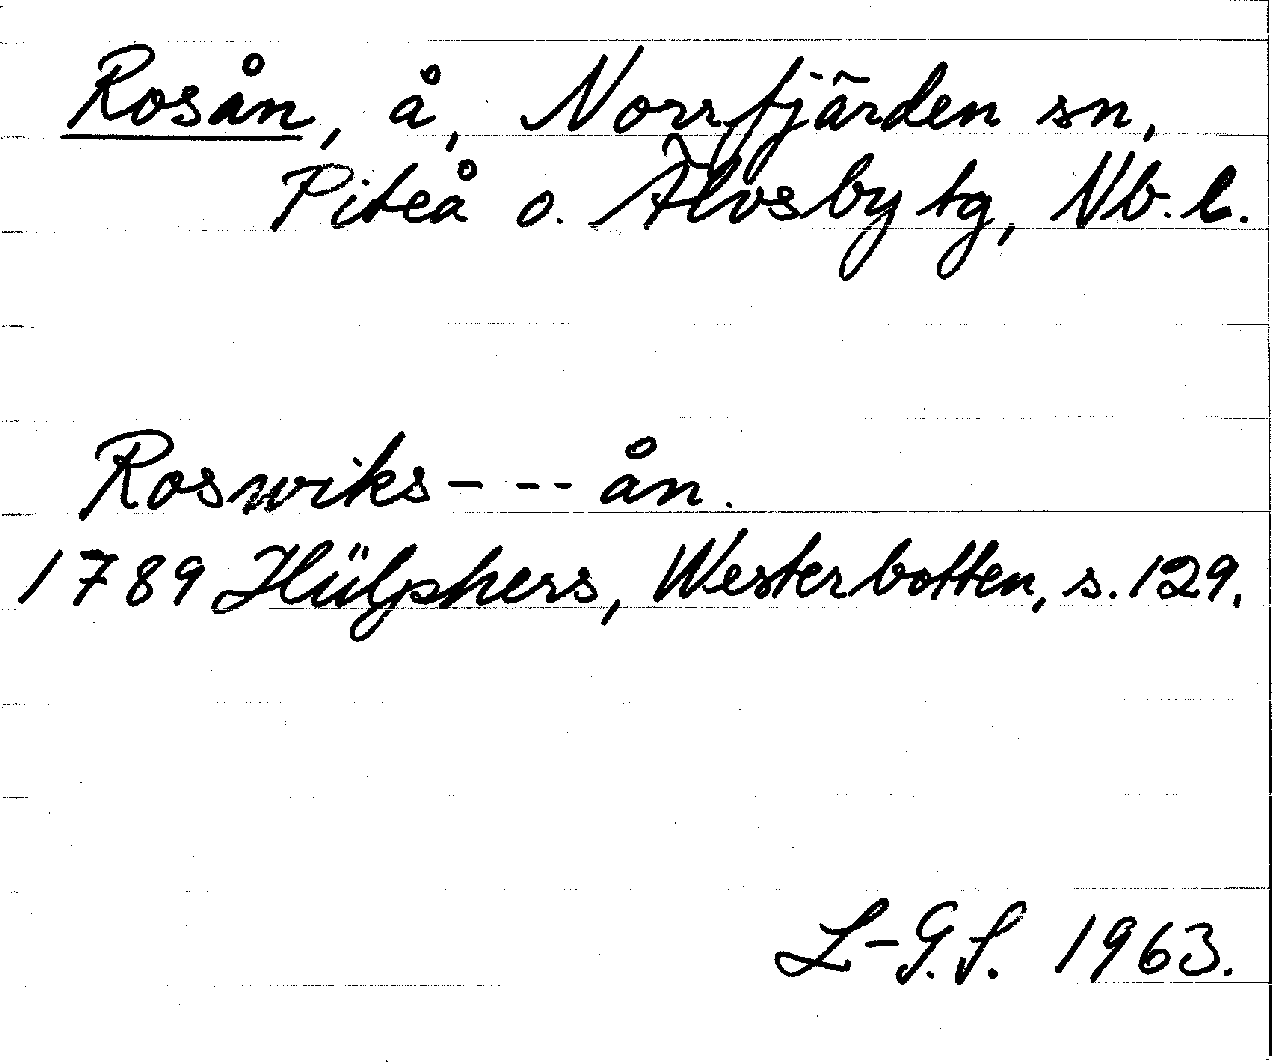 Rosån, å, Norrfjärden sn,
Piteå o. Älvsby tg, Nb. l.
Roswiks- -- ån.
1789 Hülphers, Westerbotten, s. 129.
L-G. S. 1963.